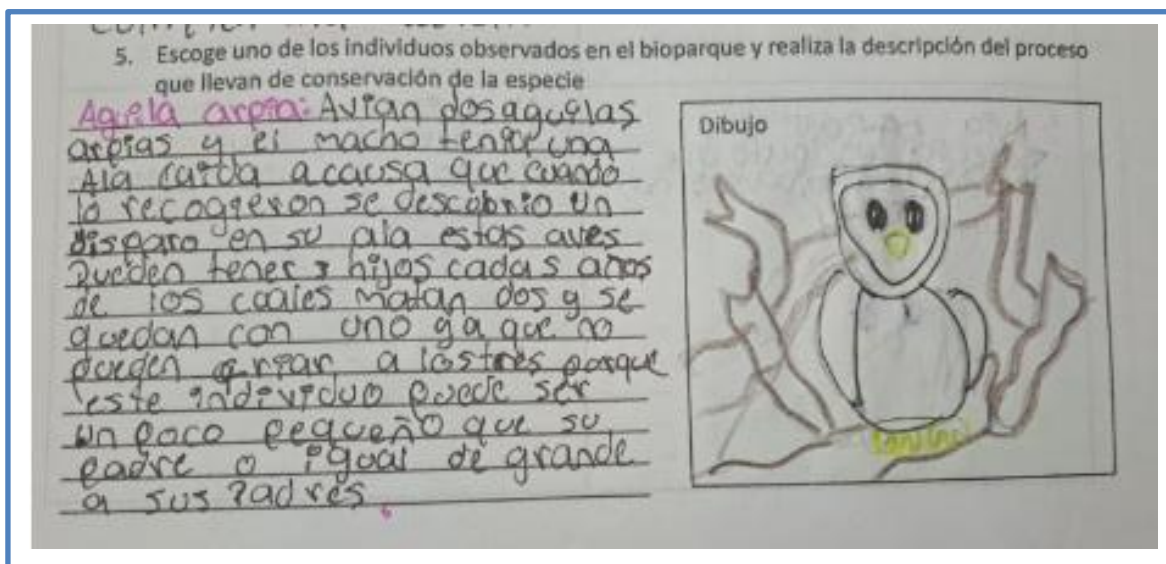 5. Escoge uno de los individuos observados en el bioparque y realiza la descripción del proceso
que llevan de conservación de la especie
Aguela arpia: Avian dos aguelas
arpias y el macho tenia una
Ala caida a causa que cuando
lo recogieron se descobrio un
disparo en su ala estas aves
pueden tener 3 hijos cada 5 años
de los cuales matan dos y se
quedan con uno ya que no
pueden criar a los tres porque
este individuo puede ser
un poco pequeño que su
padre o igual de grande
a sus padres
Dibujo